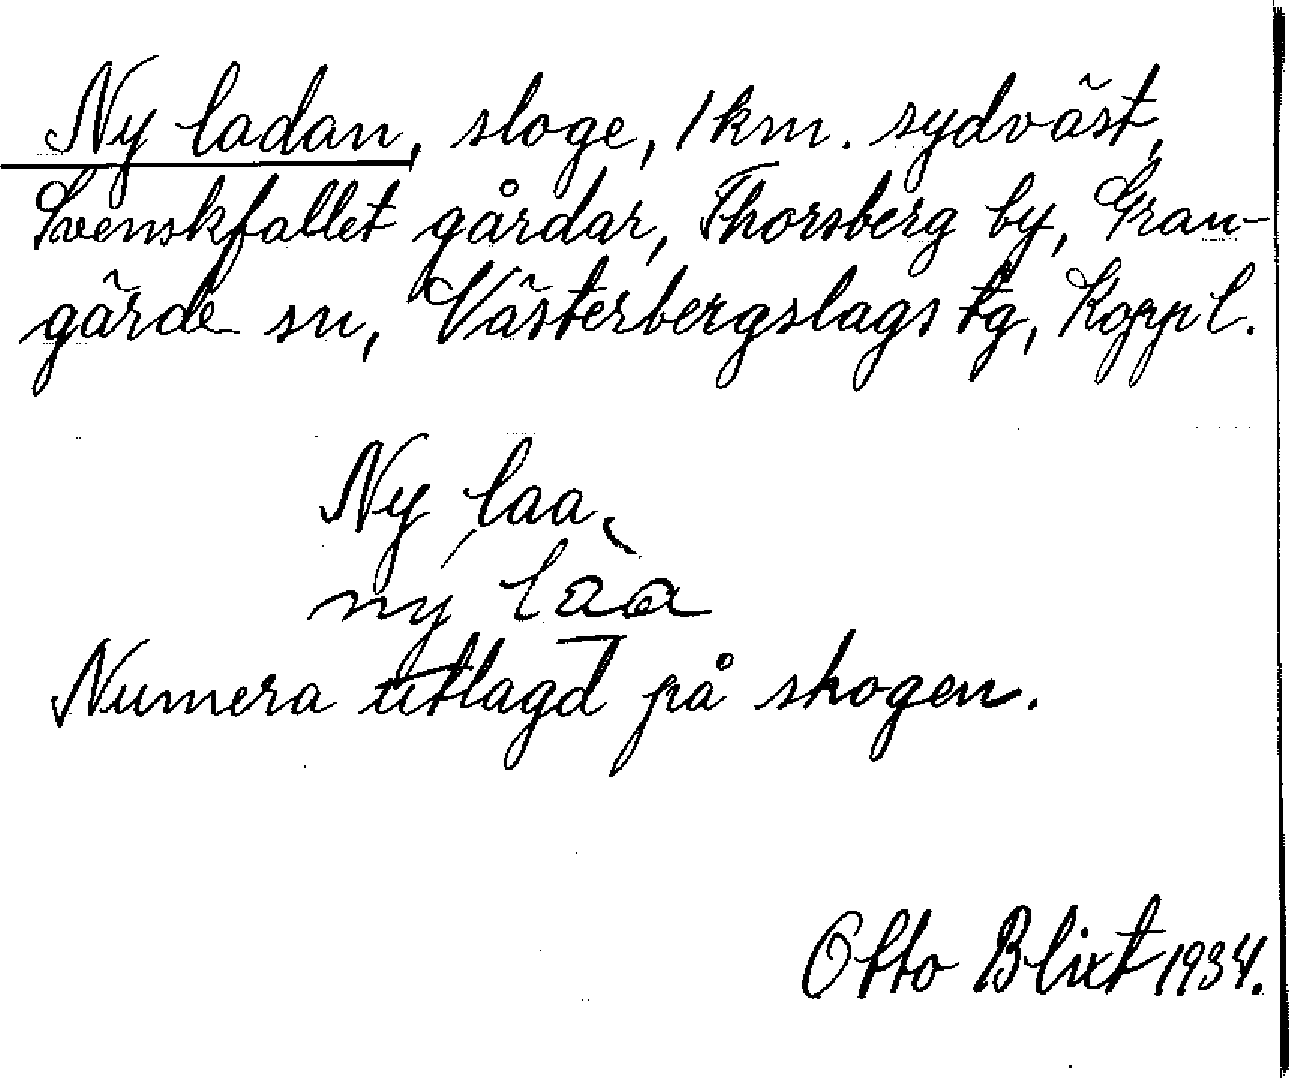 Ny ladan, sloge, 1 km. sydväst,
Svenskfallet gårdar, Thorsberg by, Gran-
gärde sn, Västerbergslags tg, Kopp l.
Ny laa.
ny làa
Numera utlagd på skogen.
Otto Blixt 1934.